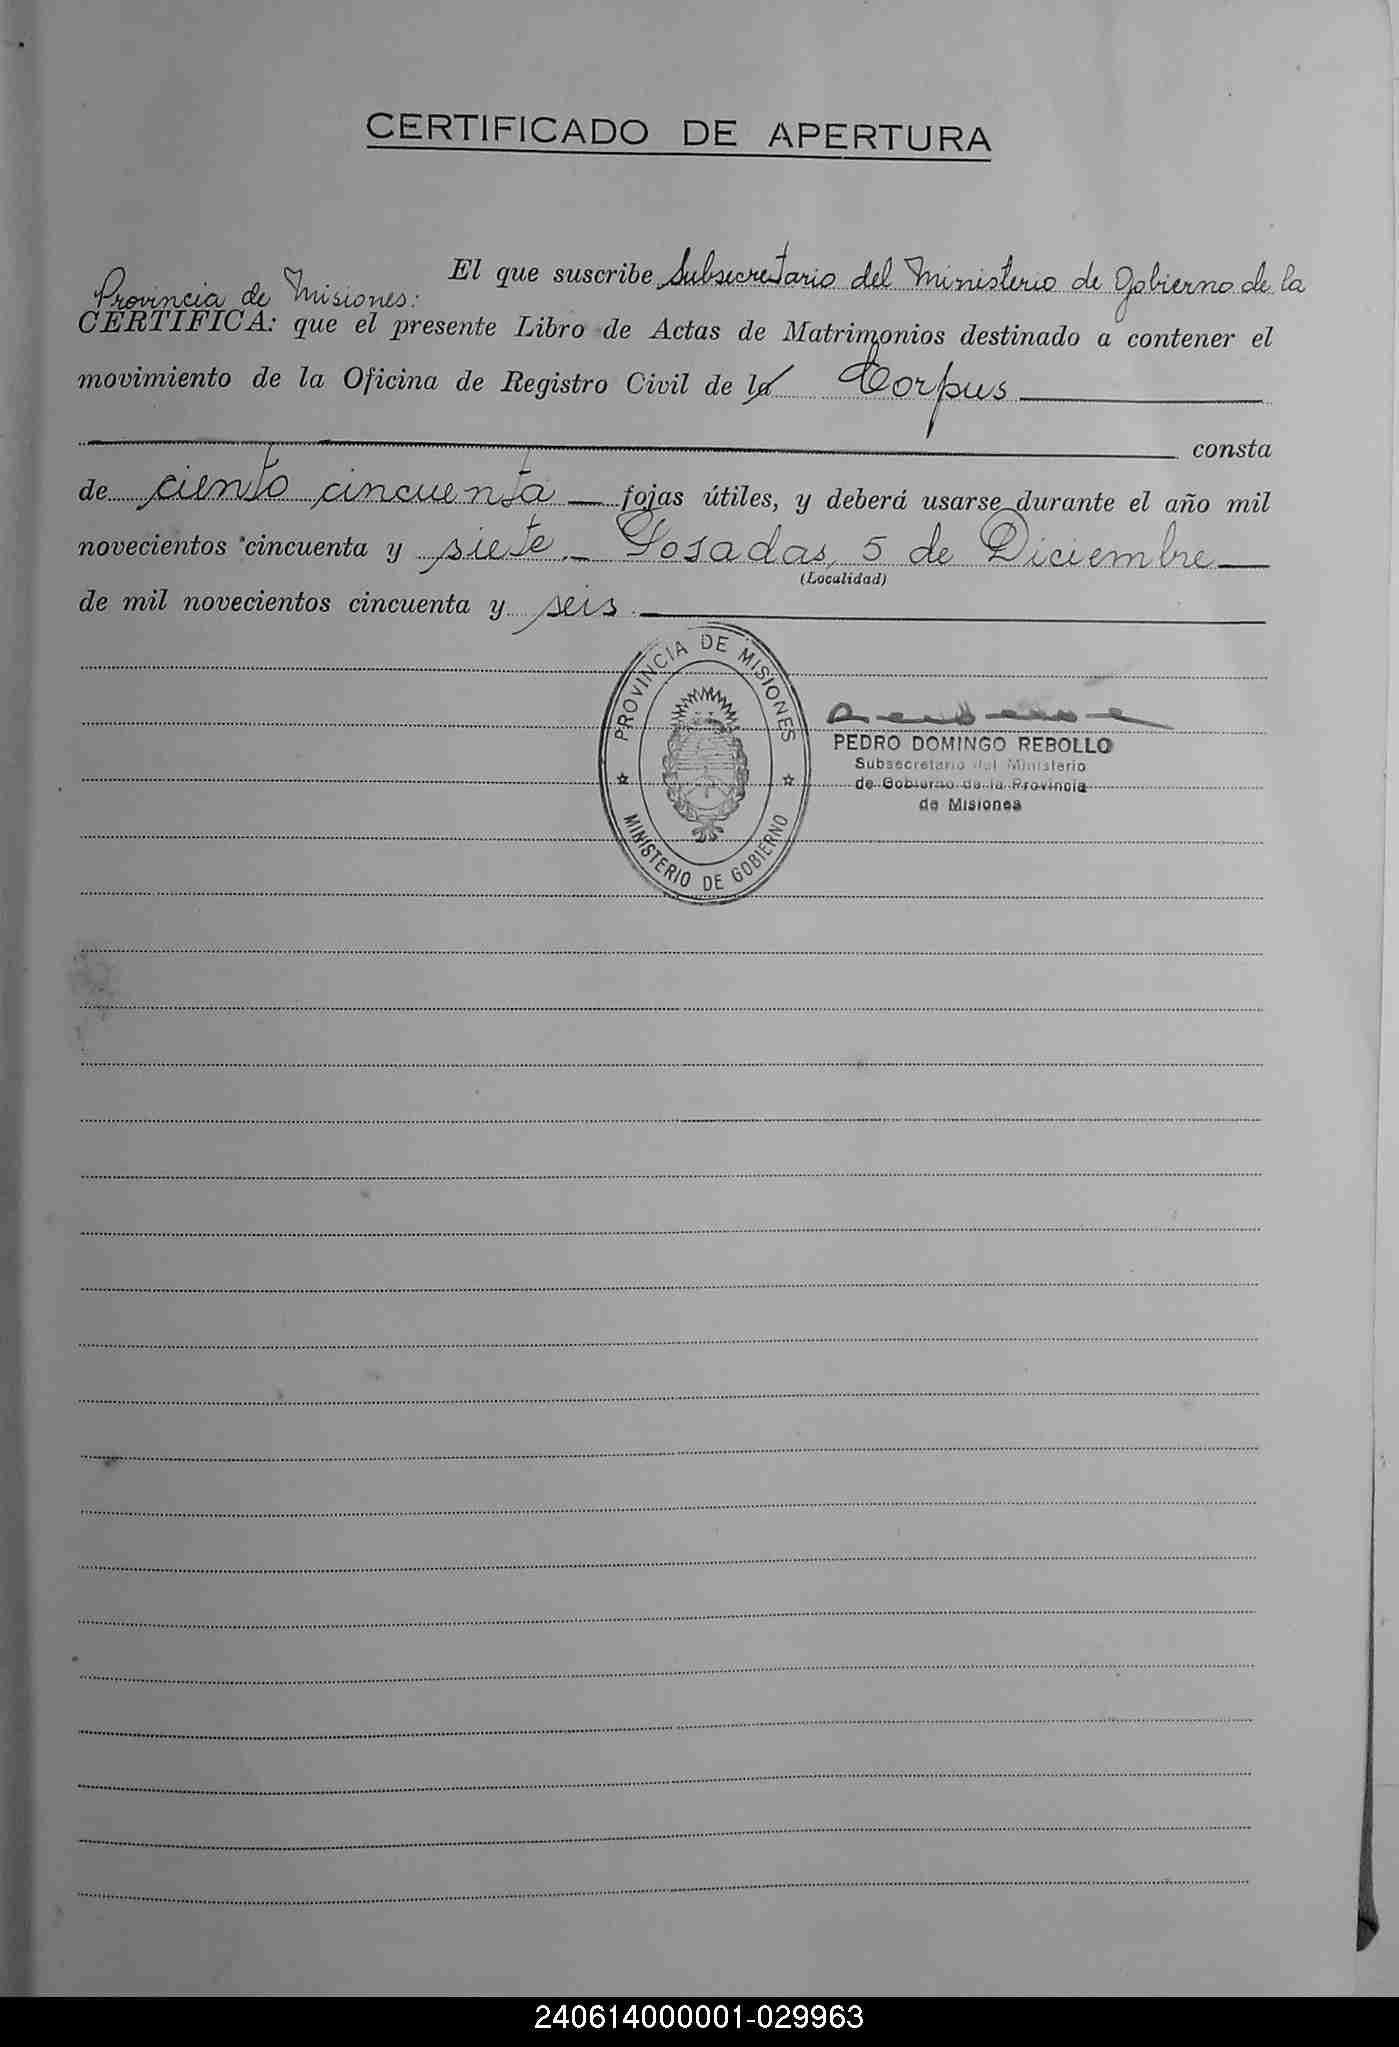 CERTIFICADO DE APERTURA
El que suscribe Subsecretario del Ministerio de Gobierno de la
Provincia de Misiones:
CERTIFICA: que el presente Libro de Actas de Matrimonios destinado a contener el
movimiento de la Oficina de Registro Civil de la Corpus
consta
de ciento cincuenta fojas útiles, y deberá usarse durante el año mil
novecientos cincuenta y siete.- Posadas, 5 de Diciembre
(Localidad)
de mil novecientos cincuenta y seis.
PROVINCIA DE MISIONES
MINISTERIO DE GOBIERNO
PEDRO DOMINGO REBOLLO
Subsecretario del Ministerio
de Gobierno de la Provincia
de Misiones
240614000001-029963